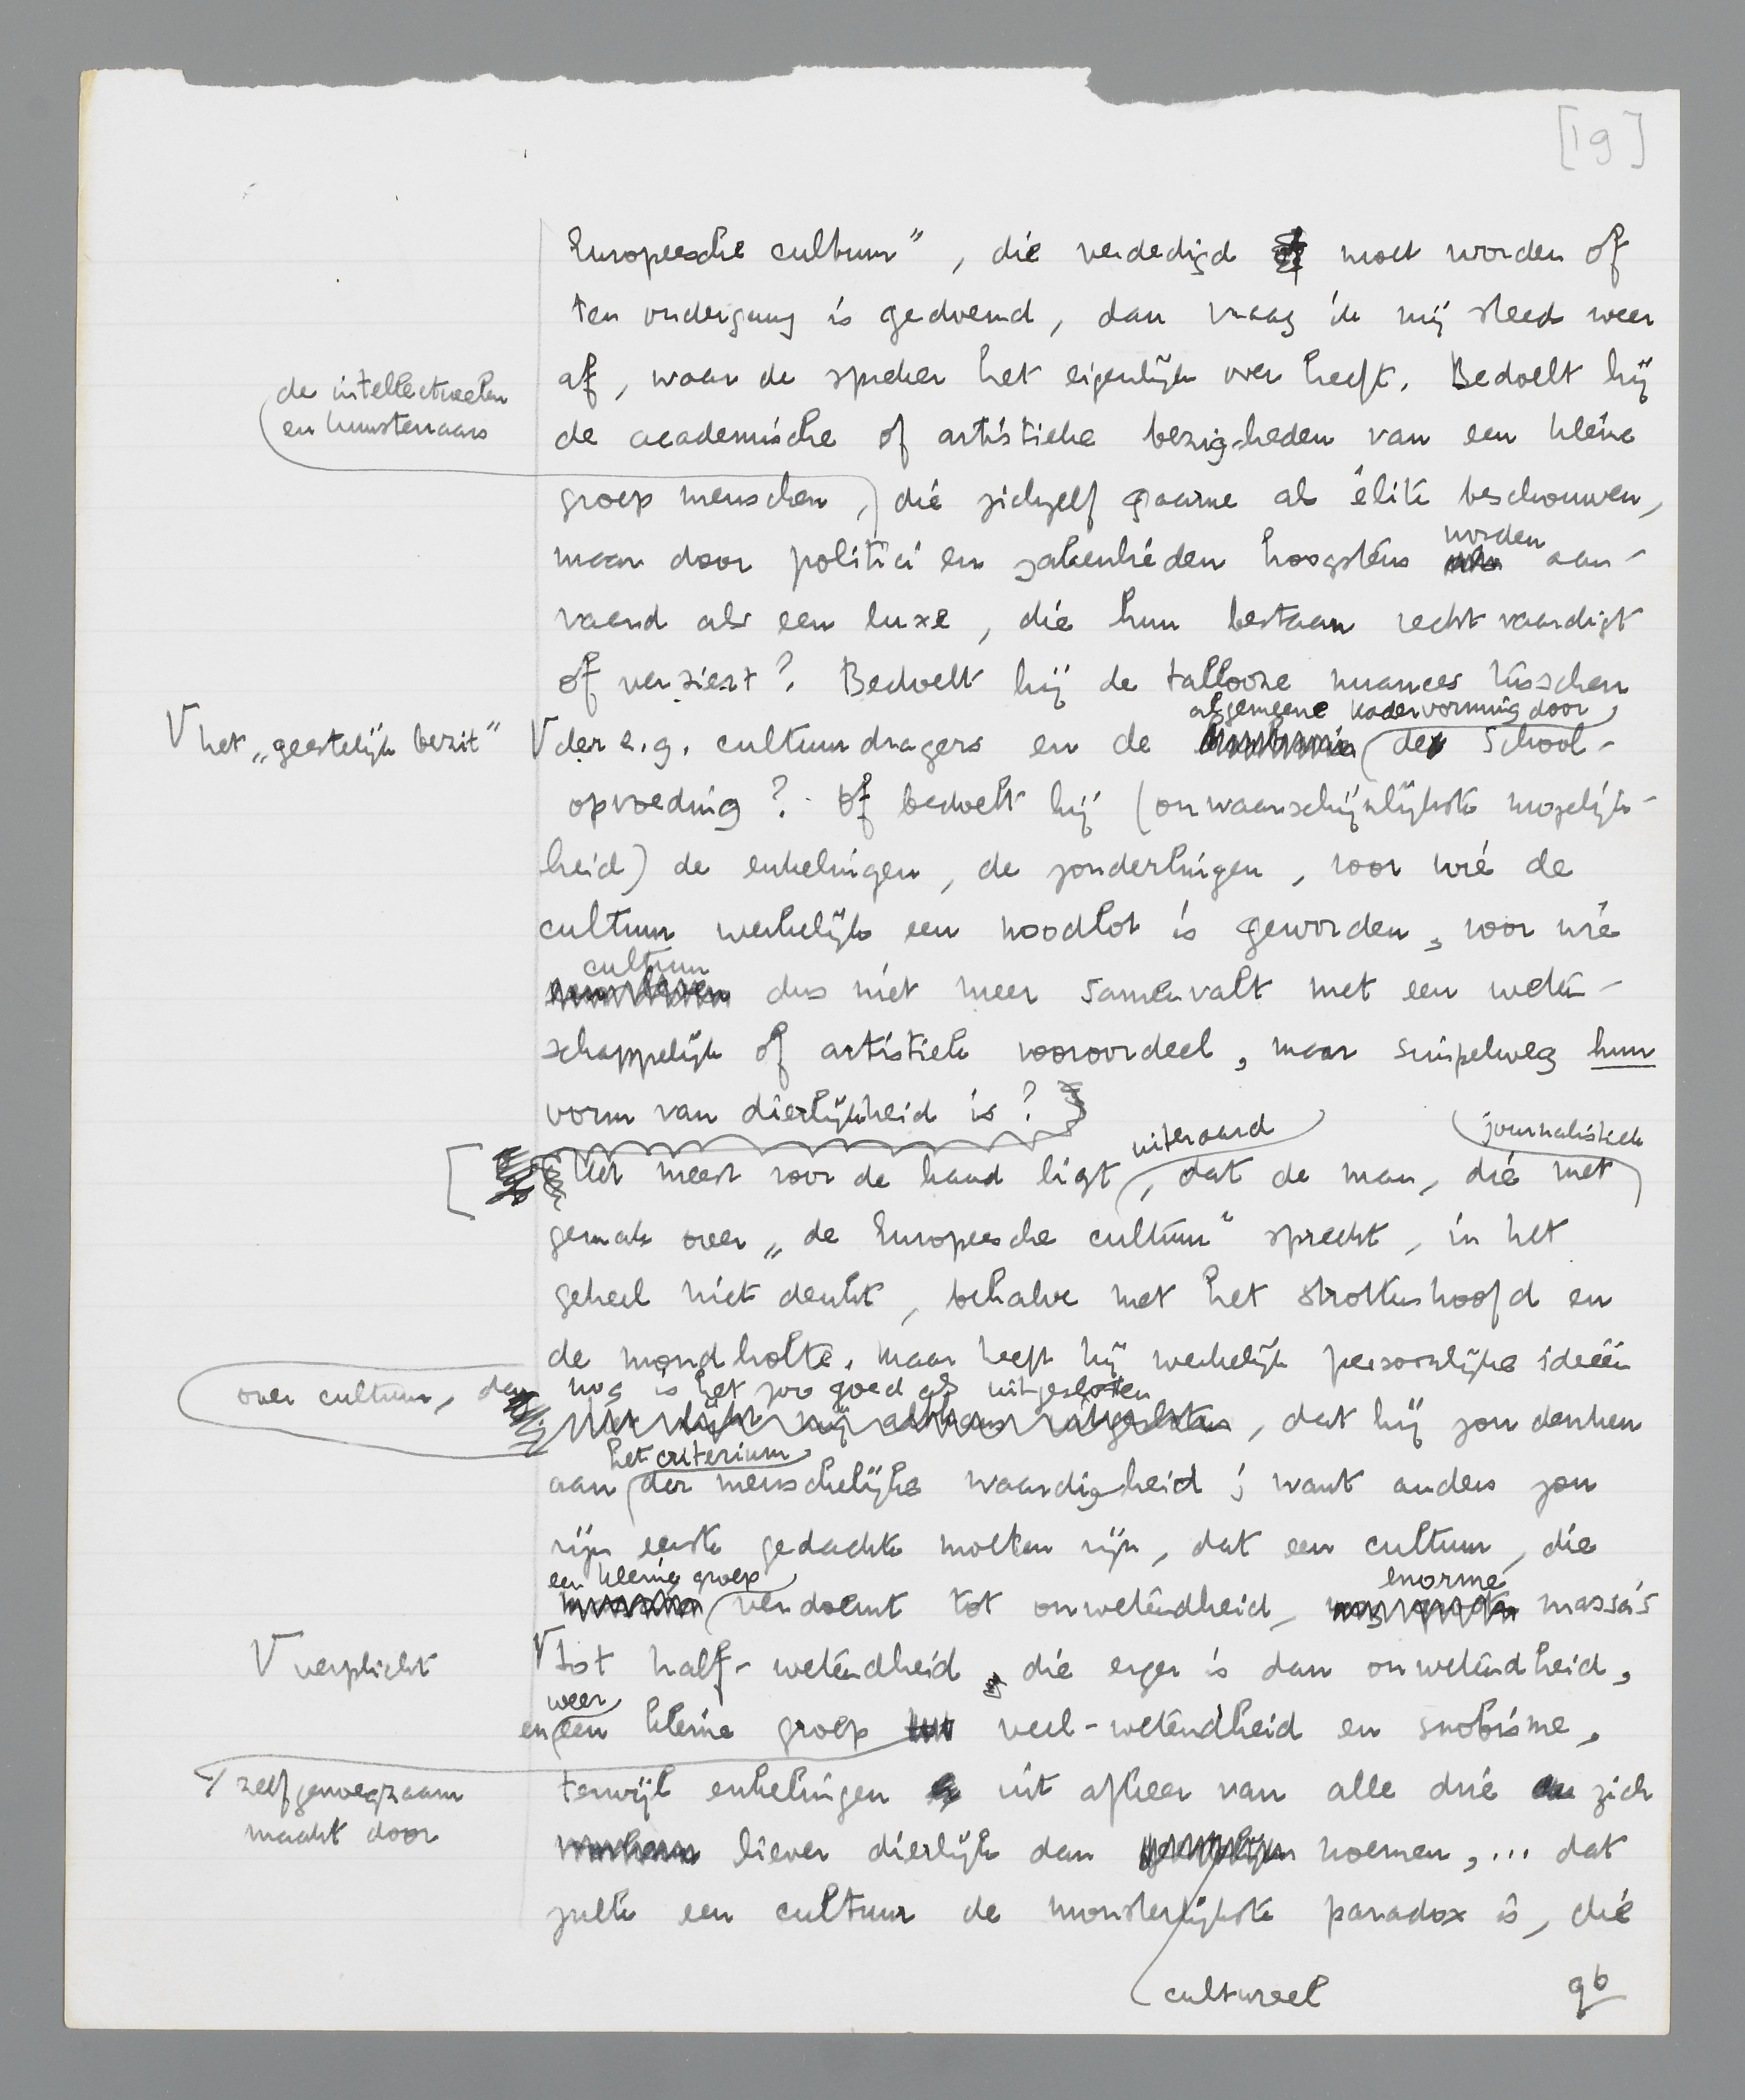 [19]
Europeesche cultuur”, die verdedigd moet worden of
ten ondergang is gedoemd, dan vraag ik mij steeds weer
af, waar de spreker het eigenlijk over heeft. Bedoelt hij
de intellectueelen
en kunstenaars
de academische of artistieke bezigheden van een kleine
groep menschen, die zichzelf gaarne als élite beschouwen,
worden
maar door politici en zakenlieden hoogstens aan-
vaard als een luxe, die hun bestaan rechtvaardigt
of versiert? Bedoelt hij de tallooze nuances tusschen
algemeene kadervorming door
V het „geestelijk bezit”
V der z.g. cultuurdragers en de de school-
opvoeding? Of bedoelt hij (onwaarschijnlijkste mogelijk-
heid) de enkelingen, de zonderlingen, voor wie de
cultuur werkelijk een noodlot is geworden, voor wie
cultuur
dus niet meer samenvalt met een weten-
schappelijk of artistiek vooroordeel, maar simpelweg hun
vorm van dierlijkheid is?
uiteraard
journalistiek
[ Het meest voor de hand ligt, dat de man, die met
gemak over „de Europeesche cultuur” spreekt, in het
geheel niet denkt, behalve met het strottenhoofd en
de mondholte. Maar heeft hij werkelijk persoonlijke ideeën
over cultuur, dan nog is het zoo goed als uitgesloten
, dat hij zou denken
het criterium
aan der menschelijke waardigheid; want anders zou
zijn eerste gedachte moeten zijn, dat een cultuur, die
een kleine groep
enorme
verdoemt tot onwetendheid, massa's
V verplicht
V tot half-wetendheid, die erger is dan onwetendheid,
weer
en een kleine groep veel-wetendheid en snobisme,
zelfgenoegzaam
maakt door
terwijl enkelingen uit afkeer van alle drie zich
liever dierlijk dan noemen,... dat
zulk een cultuur de monsterlijkste paradox is, die
cultureel
9b